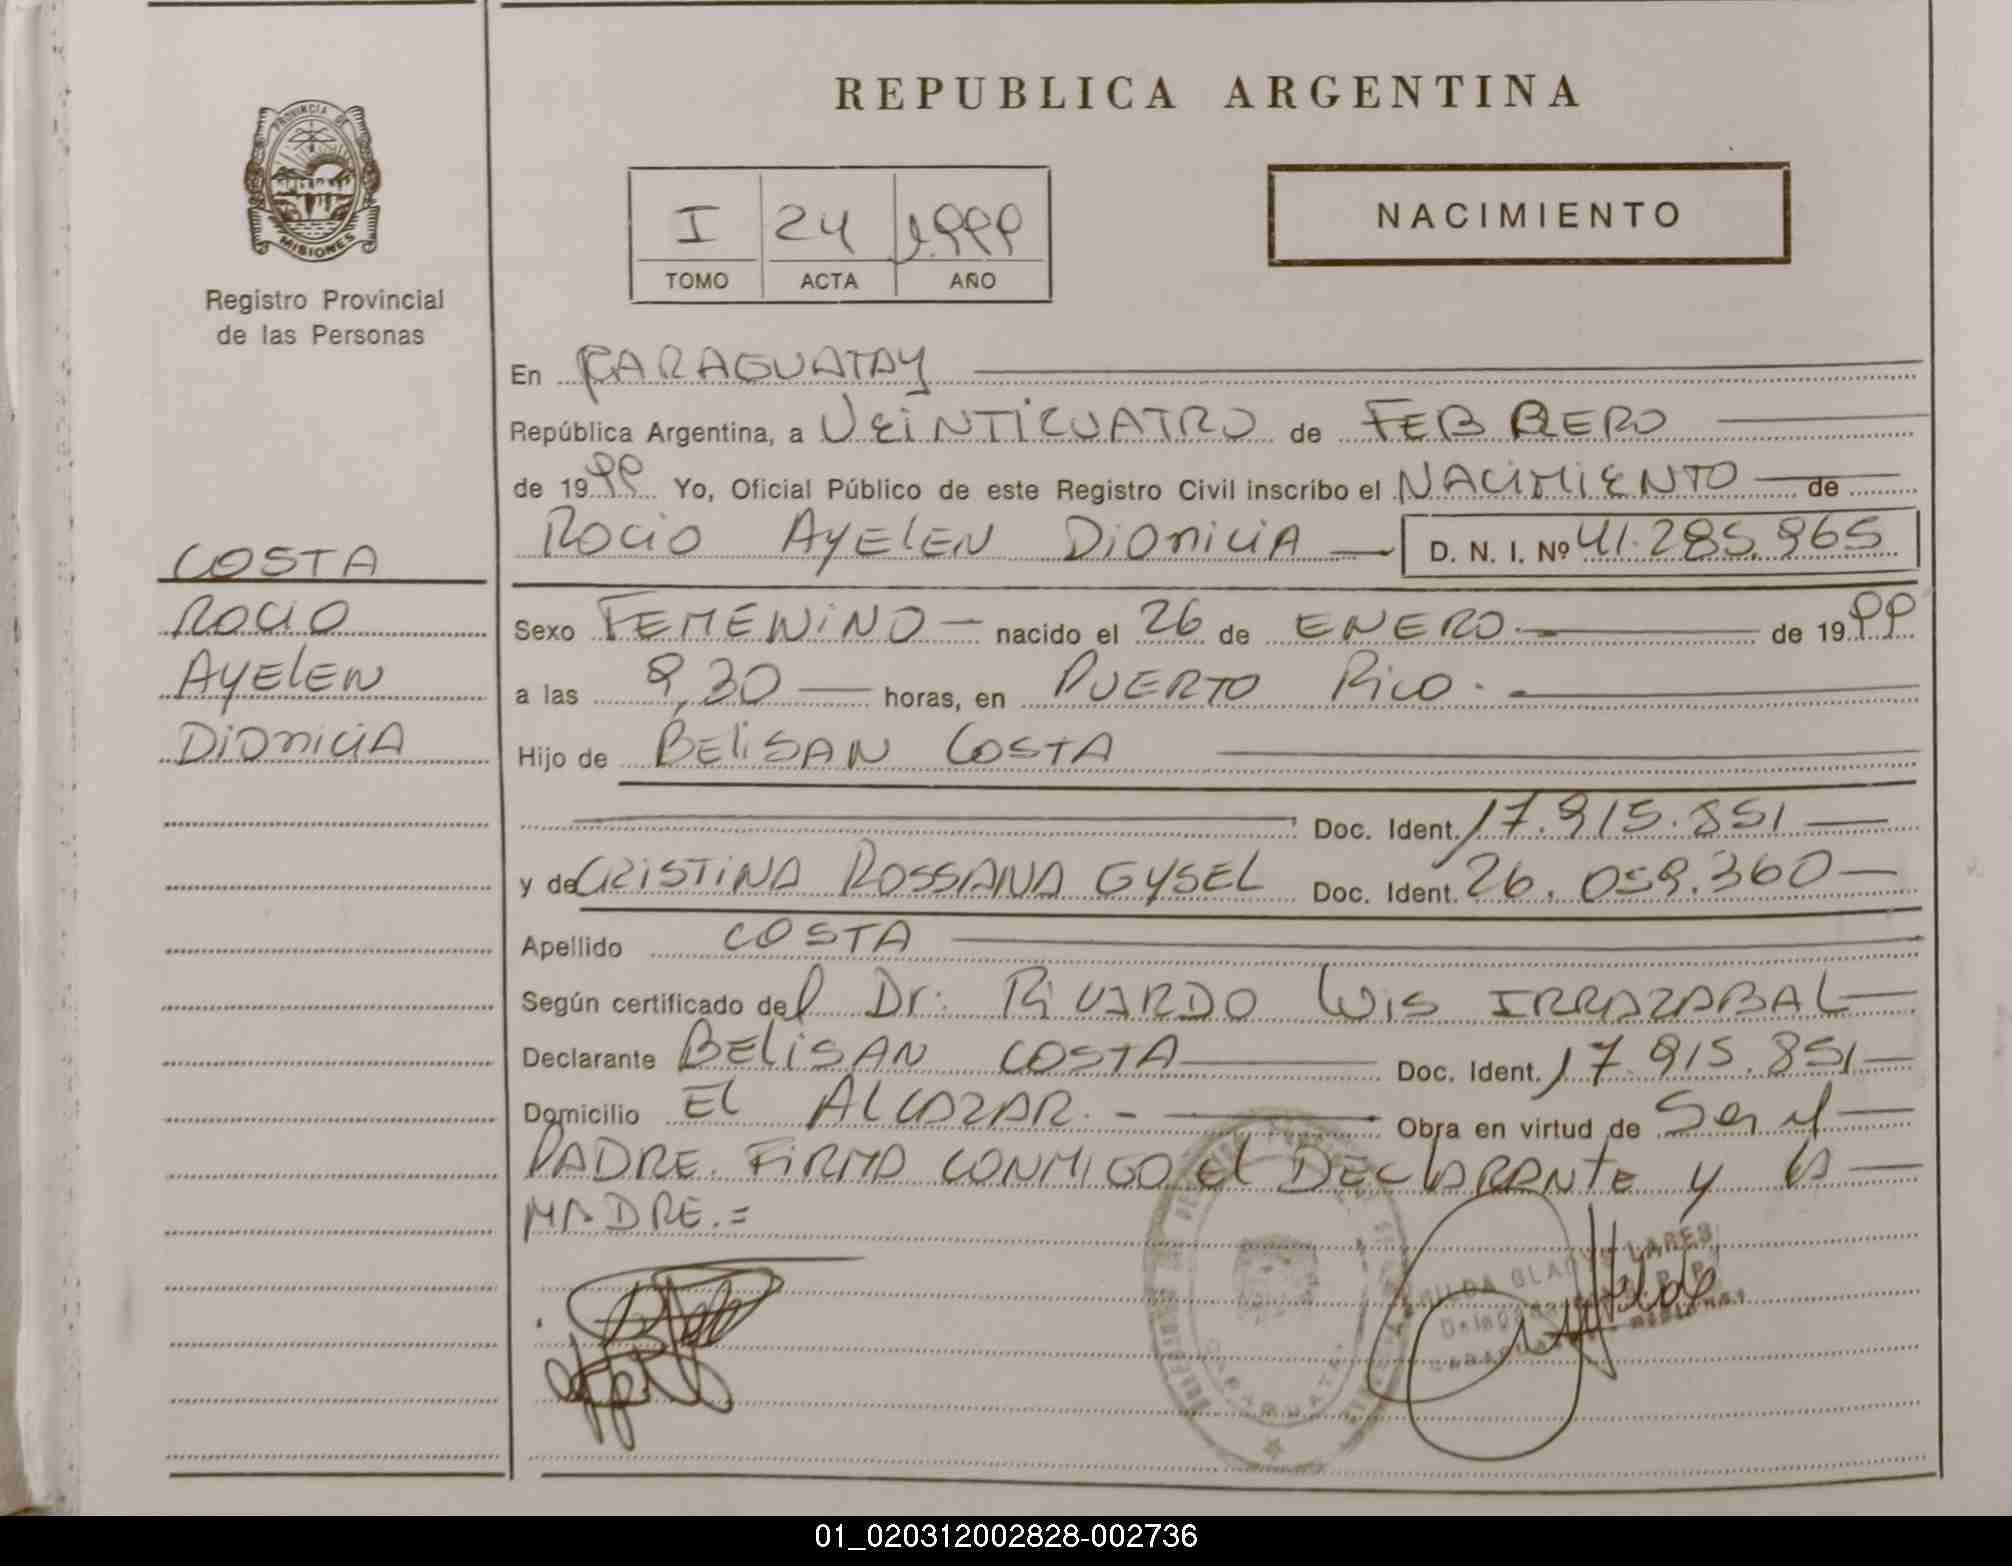 REPUBLICA ARGENTINA
PROVINCIA DE
MISIONES
Registro Provincial
de las Personas
I 24 1.999
TOMO ACTA AÑO
NACIMIENTO
En CARAGUATAY
República Argentina, a VEINTICUATRO de FEBRERO
de 1999 Yo, Oficial Público de este Registro Civil inscribo el NACIMIENTO de
ROCIO AYELEN DIONICIA D. N. I. Nº 41.285.965
COSTA
ROCIO
AYELEN
DIONICIA
Sexo FEMENINO nacido el 26 de ENERO de 1999
a las 9,30 horas, en PUERTO RICO.
Hijo de BELISAN COSTA
Doc. Ident. 17.915.851
y de CRISTINA ROSSANA GYSEL Doc. Ident. 26.059.360
Apellido COSTA
Según certificado del Dr: RICARDO LUIS IRRAZABAL
Declarante BELISAN COSTA Doc. Ident. 17.915.851
Domicilio EL ALCAZAR.- Obra en virtud de Ser el
PADRE. FIRMA CONMIGO El DECLARANTE y la
MADRE.=
GLADYS LARES
CARAGUATAY
01_020312002828-002736